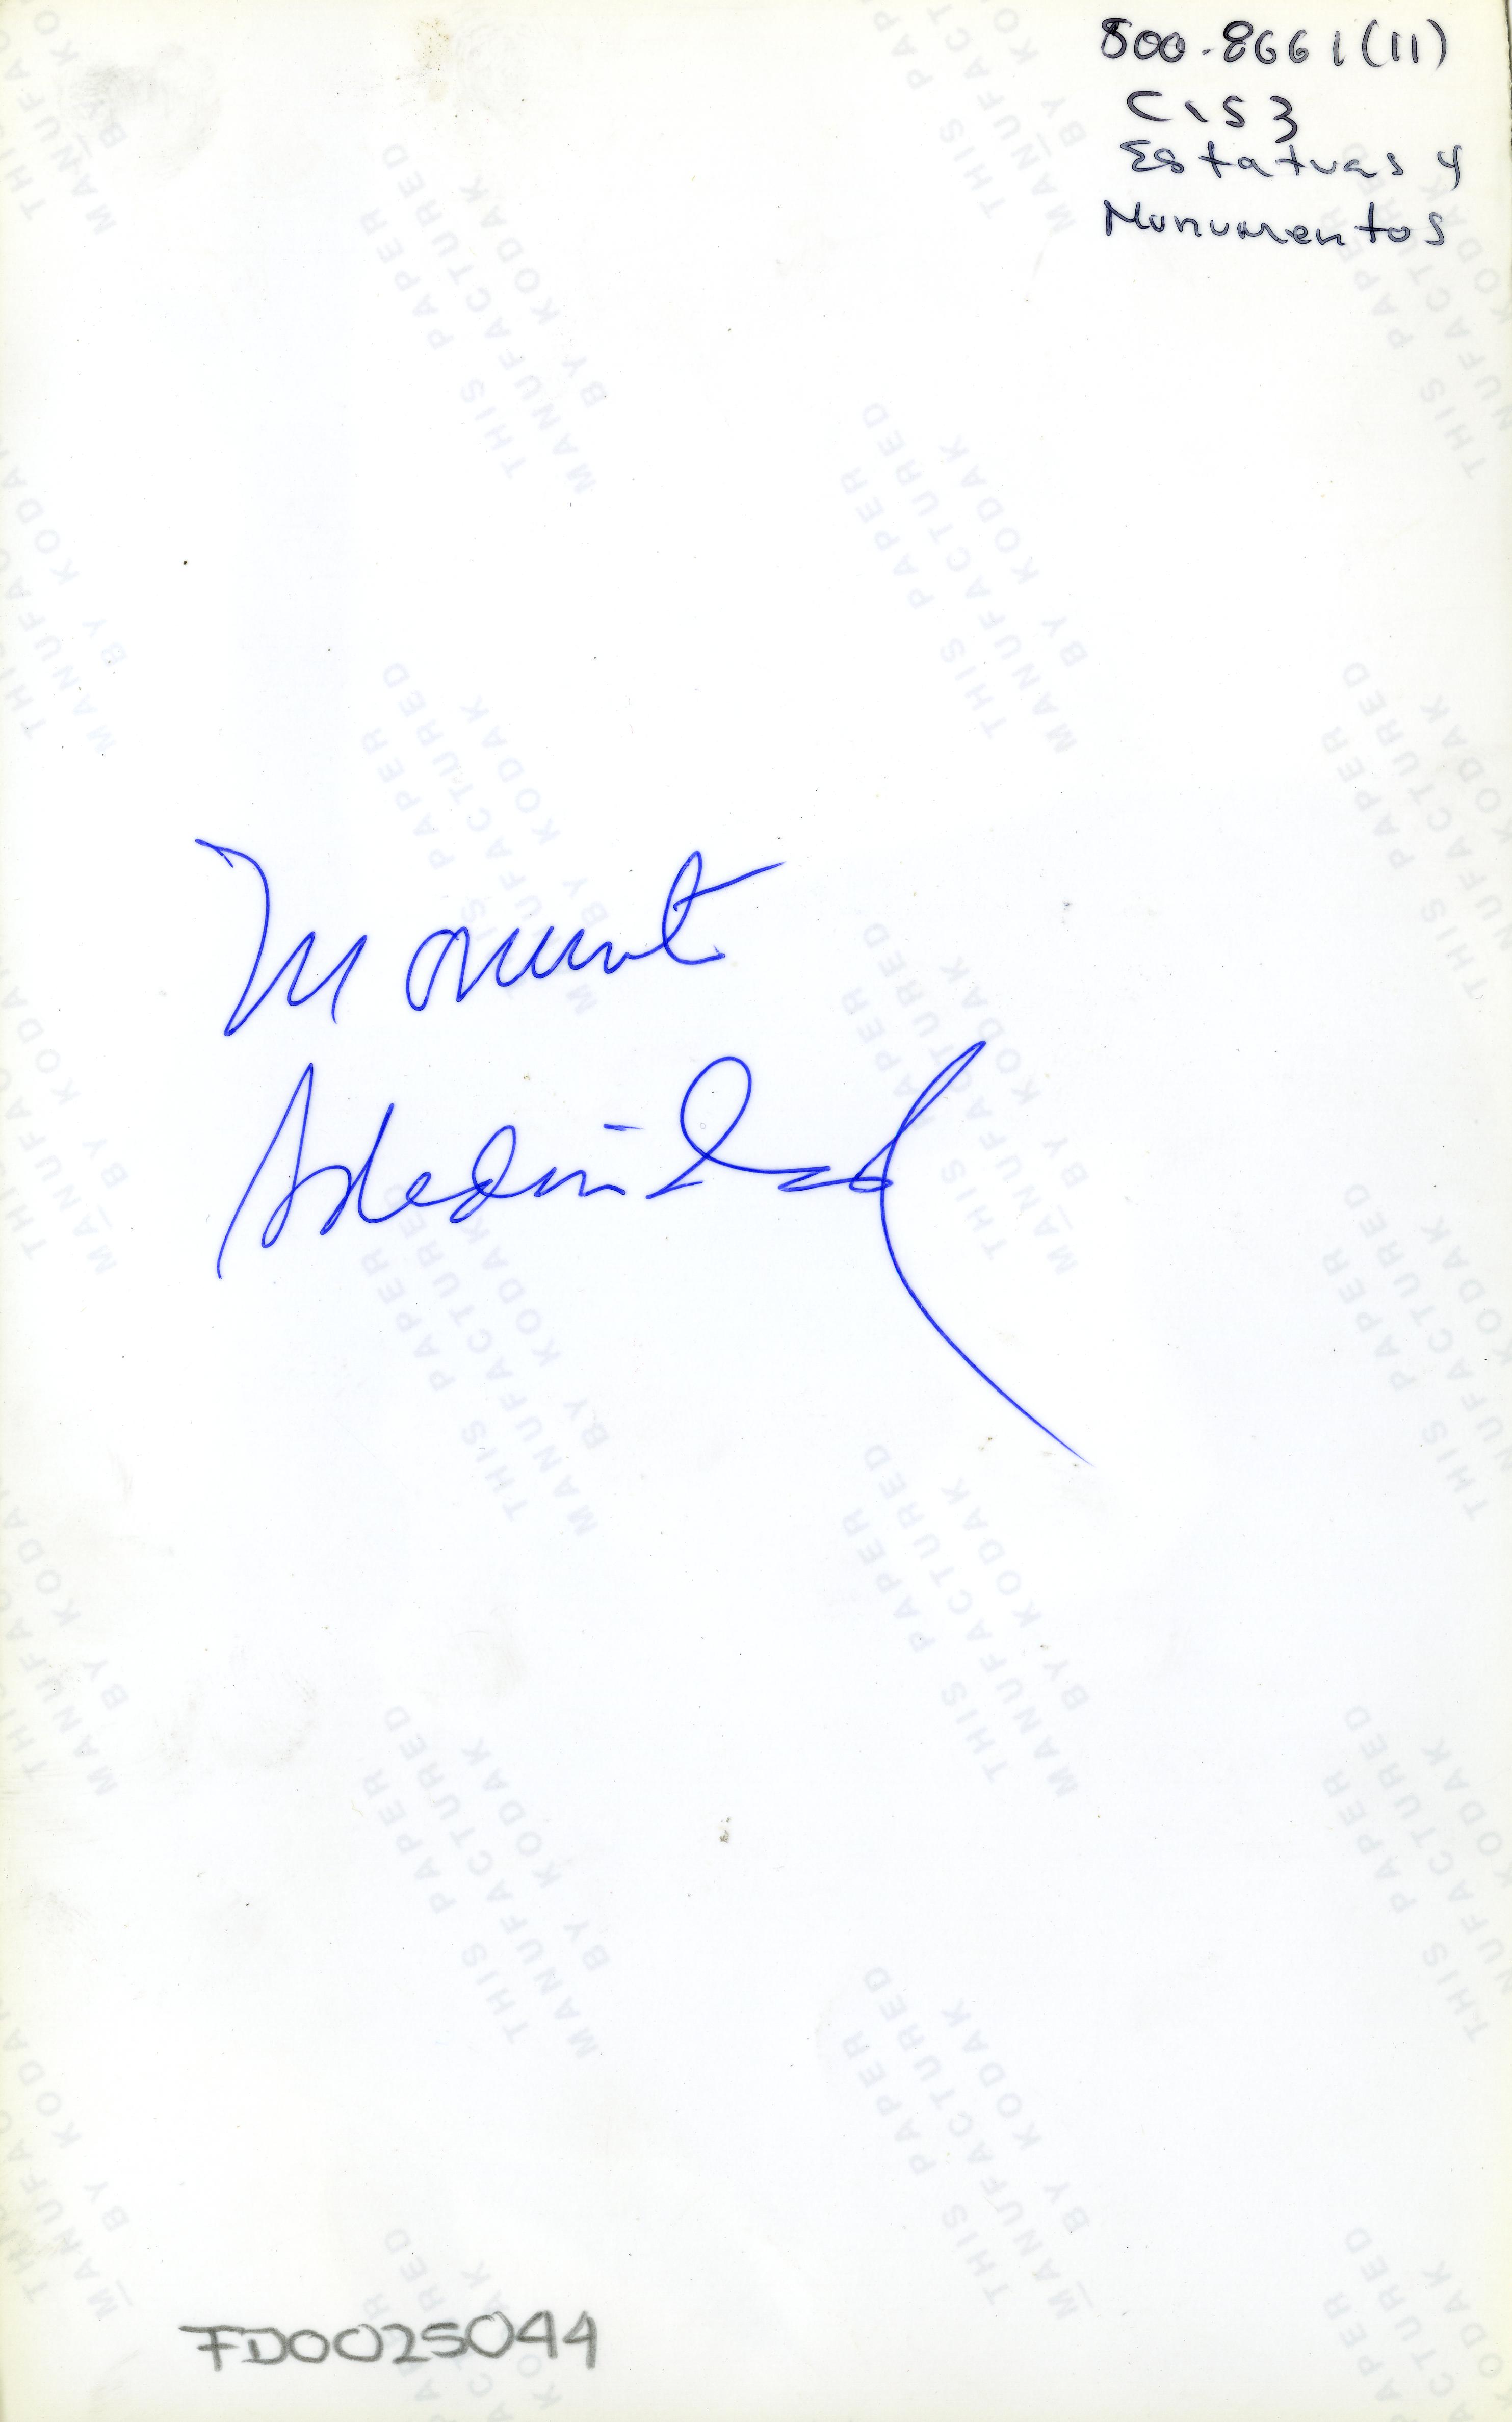 800-8661(11)
C153
Estatuas y
Monumentos
FD0025044
THIS PAPER
MANUFACTURED
BY KODAK